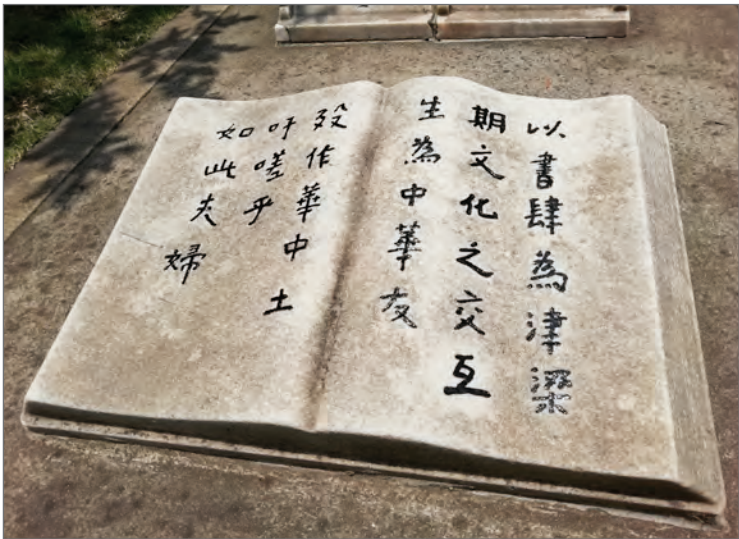 以書肆為津梁
期文化之交互
生為中華友
歿作華中土
吁嗟乎
如此夫婦